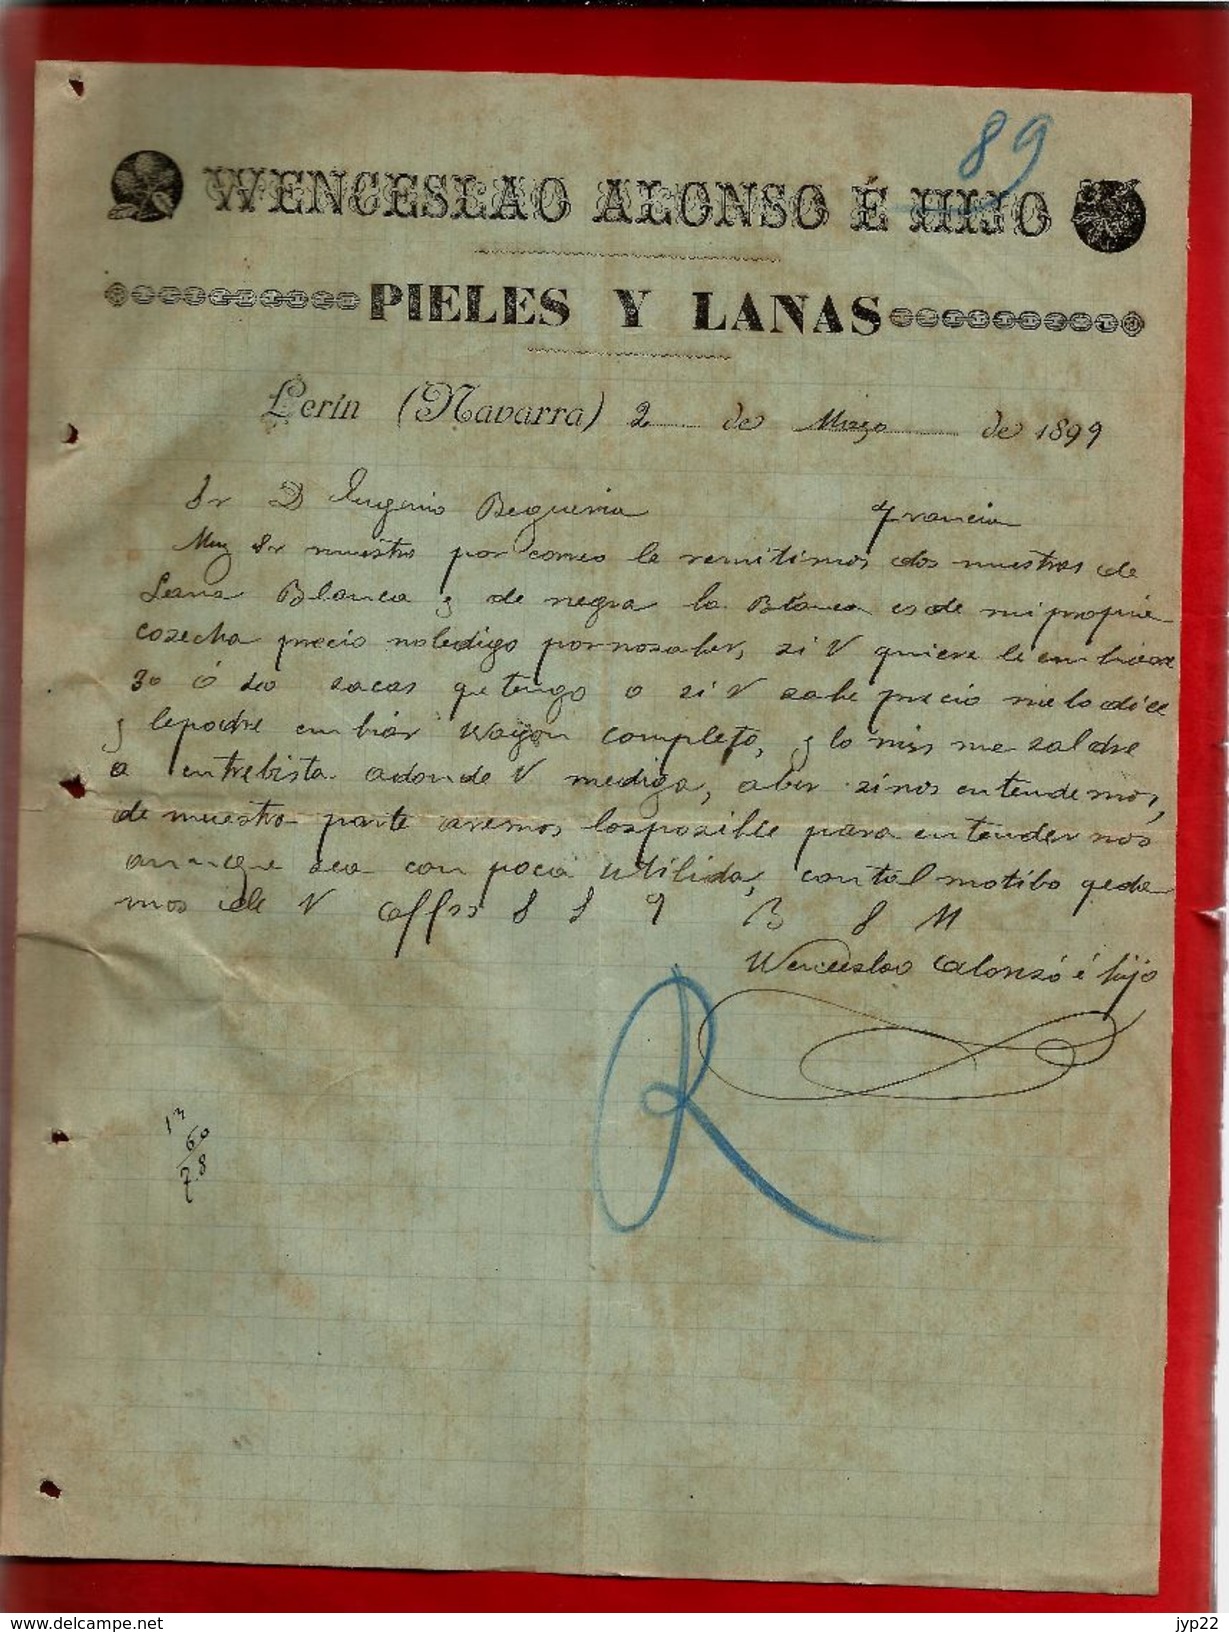 89
WENCESLAO ALONSO É HIJO
PIELES Y LANAS
Lerín (Navarra) 2 de Marzo de 1899
Sr D Eugenio Begueria Francia
Muy Sr nuestro por correo le remitimos dos muestras de
Lana Blanca y de negra la Blanca es de mi propie
cosecha precio noledigo pornosaber, si V quiere le embiare
30 ó sacas qe tengo o si V sabe precio melo dice
y lepodre embiar Wagon completo, y lo mis me saldre
a entrebista adonde V mediga, aber sinos entendemos,
de nuestra parte aremos losposible para entender nos
aunuqe sea con poca utilida, contal motibo qeda
mos de V affss S S q B S M
Wenceslao Alonso é hijo
R
13
60
78
delcampe.net
jyp22